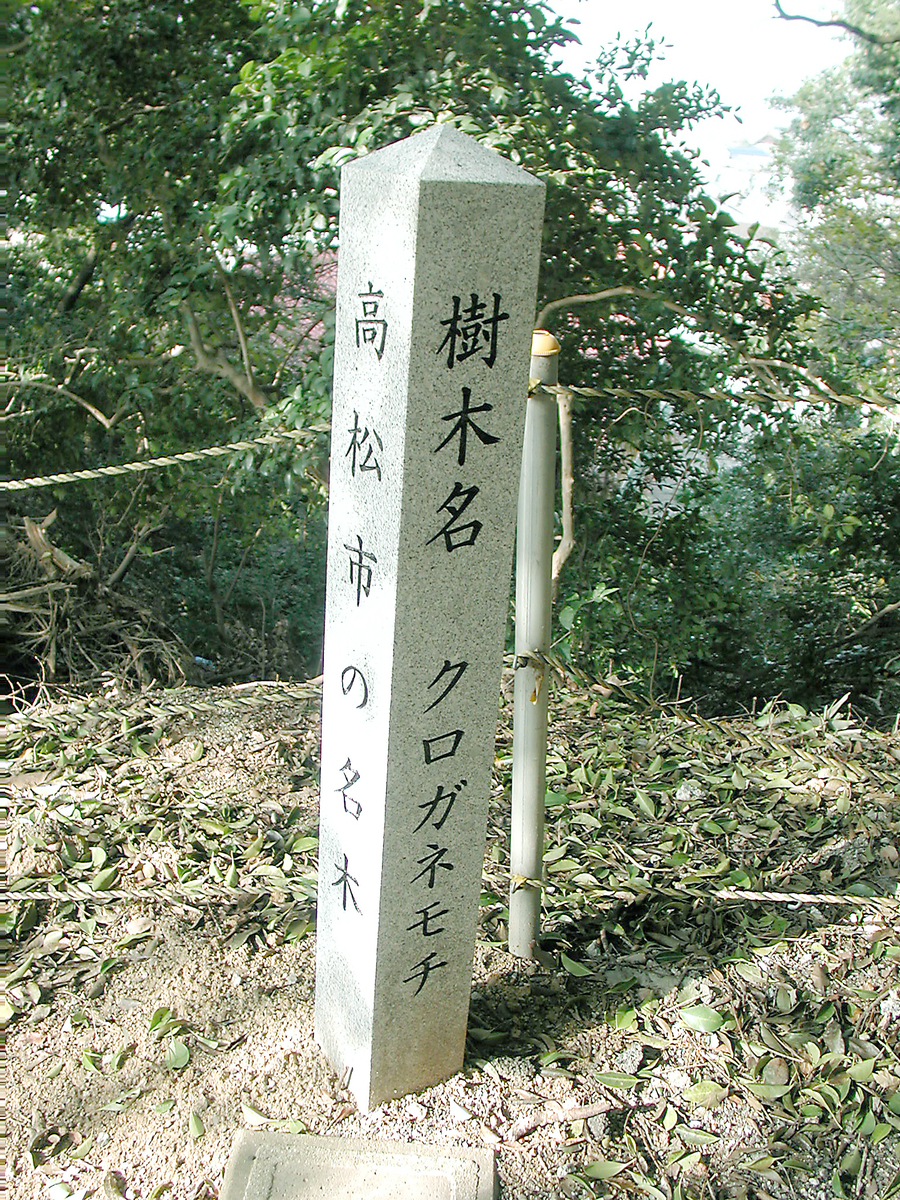 樹木名 クロガネモチ
高松市の名木